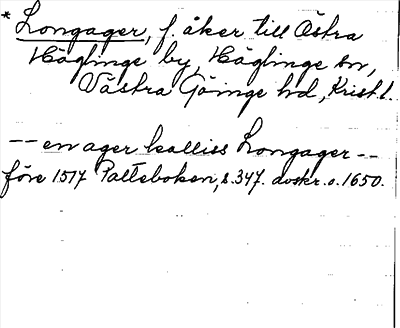 * Longager, f. åker till Östra
Häglinge by, Häglinge sn,
Västra Göinge hd, Krist. l.
-- en ager kalliss Longager --
före 1517 Palteboken, s. 347. avskr. o. 1650.